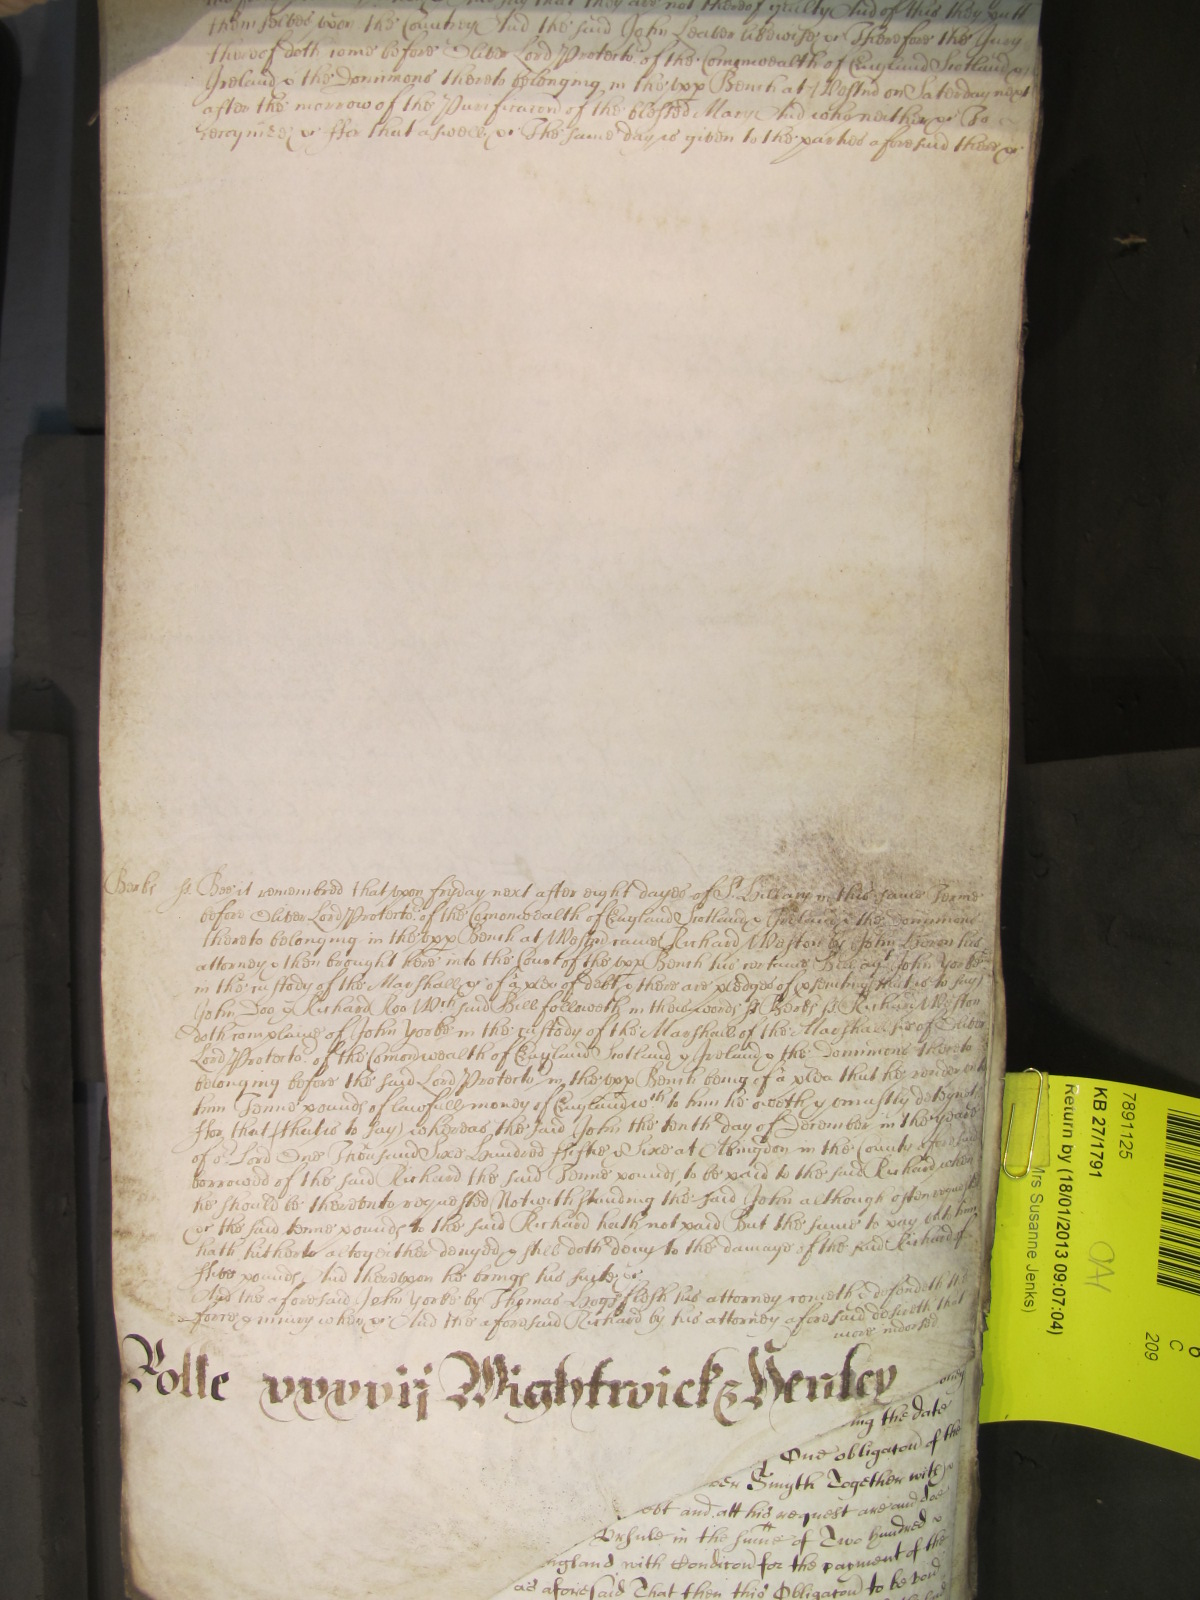 say that they are not thereof guilty And of this they putt
themselves upon the Countrey And the said John Leaver likewise &c Therefore the Jury
thereof doth come before Oliver Lord Protector of the Comonwealth of England Scotland &
Ireland & the Dominions thereto belonging in the upp Bench at Westmr on Saturday next
after the morrow of the Purificacon of the blessed Mary And who neither &c To
recognize &c ffor that aswell &c The same day is given to the parties aforesaid there &c
Berks ss Bee it remembred that upon fryday next after eight dayes of St Hillary in this same Terme
before Oliver Lord Protector of the Comonwealth of England Scotland & Ireland & the Dominions
thereto belonging in the upp Bench at Westmr came Richard Weston by John his
attorney & then brought here into the Court of the upp Bench his certaine Bill agt John Yorke
in the custody of the Marshall &c of a plea of debt & there are pledges of p'senting that is to say
John Doo & Richard Roo Wch said Bill followeth in these words ss Berks ss Richard Weston
doth complaine of John Yorke in the custody of the Marshall of the Marshalsie of Oliver
Lord Protector of the Comonwealth of England Scotland & Ireland & the Dominions thereto
belonging before the said Lord Protector in the upp Bench being of a plea that he render unto
him Tenne pounds of lawfull money of England wch to him he oweth & uniustly deteyneth
ffor that (that is to say) whereas the said John the tenth day of December in the yeare
of or Lord One Thousand Sixe hundred fiftie & Sixe at Abingdon in the County aforesaid
borrowed of the said Richard the said Tenne pounds to be paid to the said Richard when
he should be thereunto requested Notwithstanding the said John although often requested
&c the said tenne pounds to the said Richard hath not paid But the same to pay unto him
hath hitherto altogether denyed & still doth deny to the damage of the said Richard of
ffive pounds And thereupon he brings his suite &c
And the aforesaid John Yorke by Thomas his attorney cometh & defendeth the
force & iniury when &c And the aforesaid Richard by his attorney aforesaid desireth that
more indorsed
Rolle xxxxij Wightwick & Henley
ing the date
One obligacon of the
Smyth Together with
and att his request are and doe
Ursule in the sume of Two hundred
ngland with Condicon for the payment of the
as aforesaid That then this Obligacon to be void
7891125
KB 27/1791
Return by (18/01/2013 09:07:04)
Mrs Susanne Jenks)
OA1
6
C
209